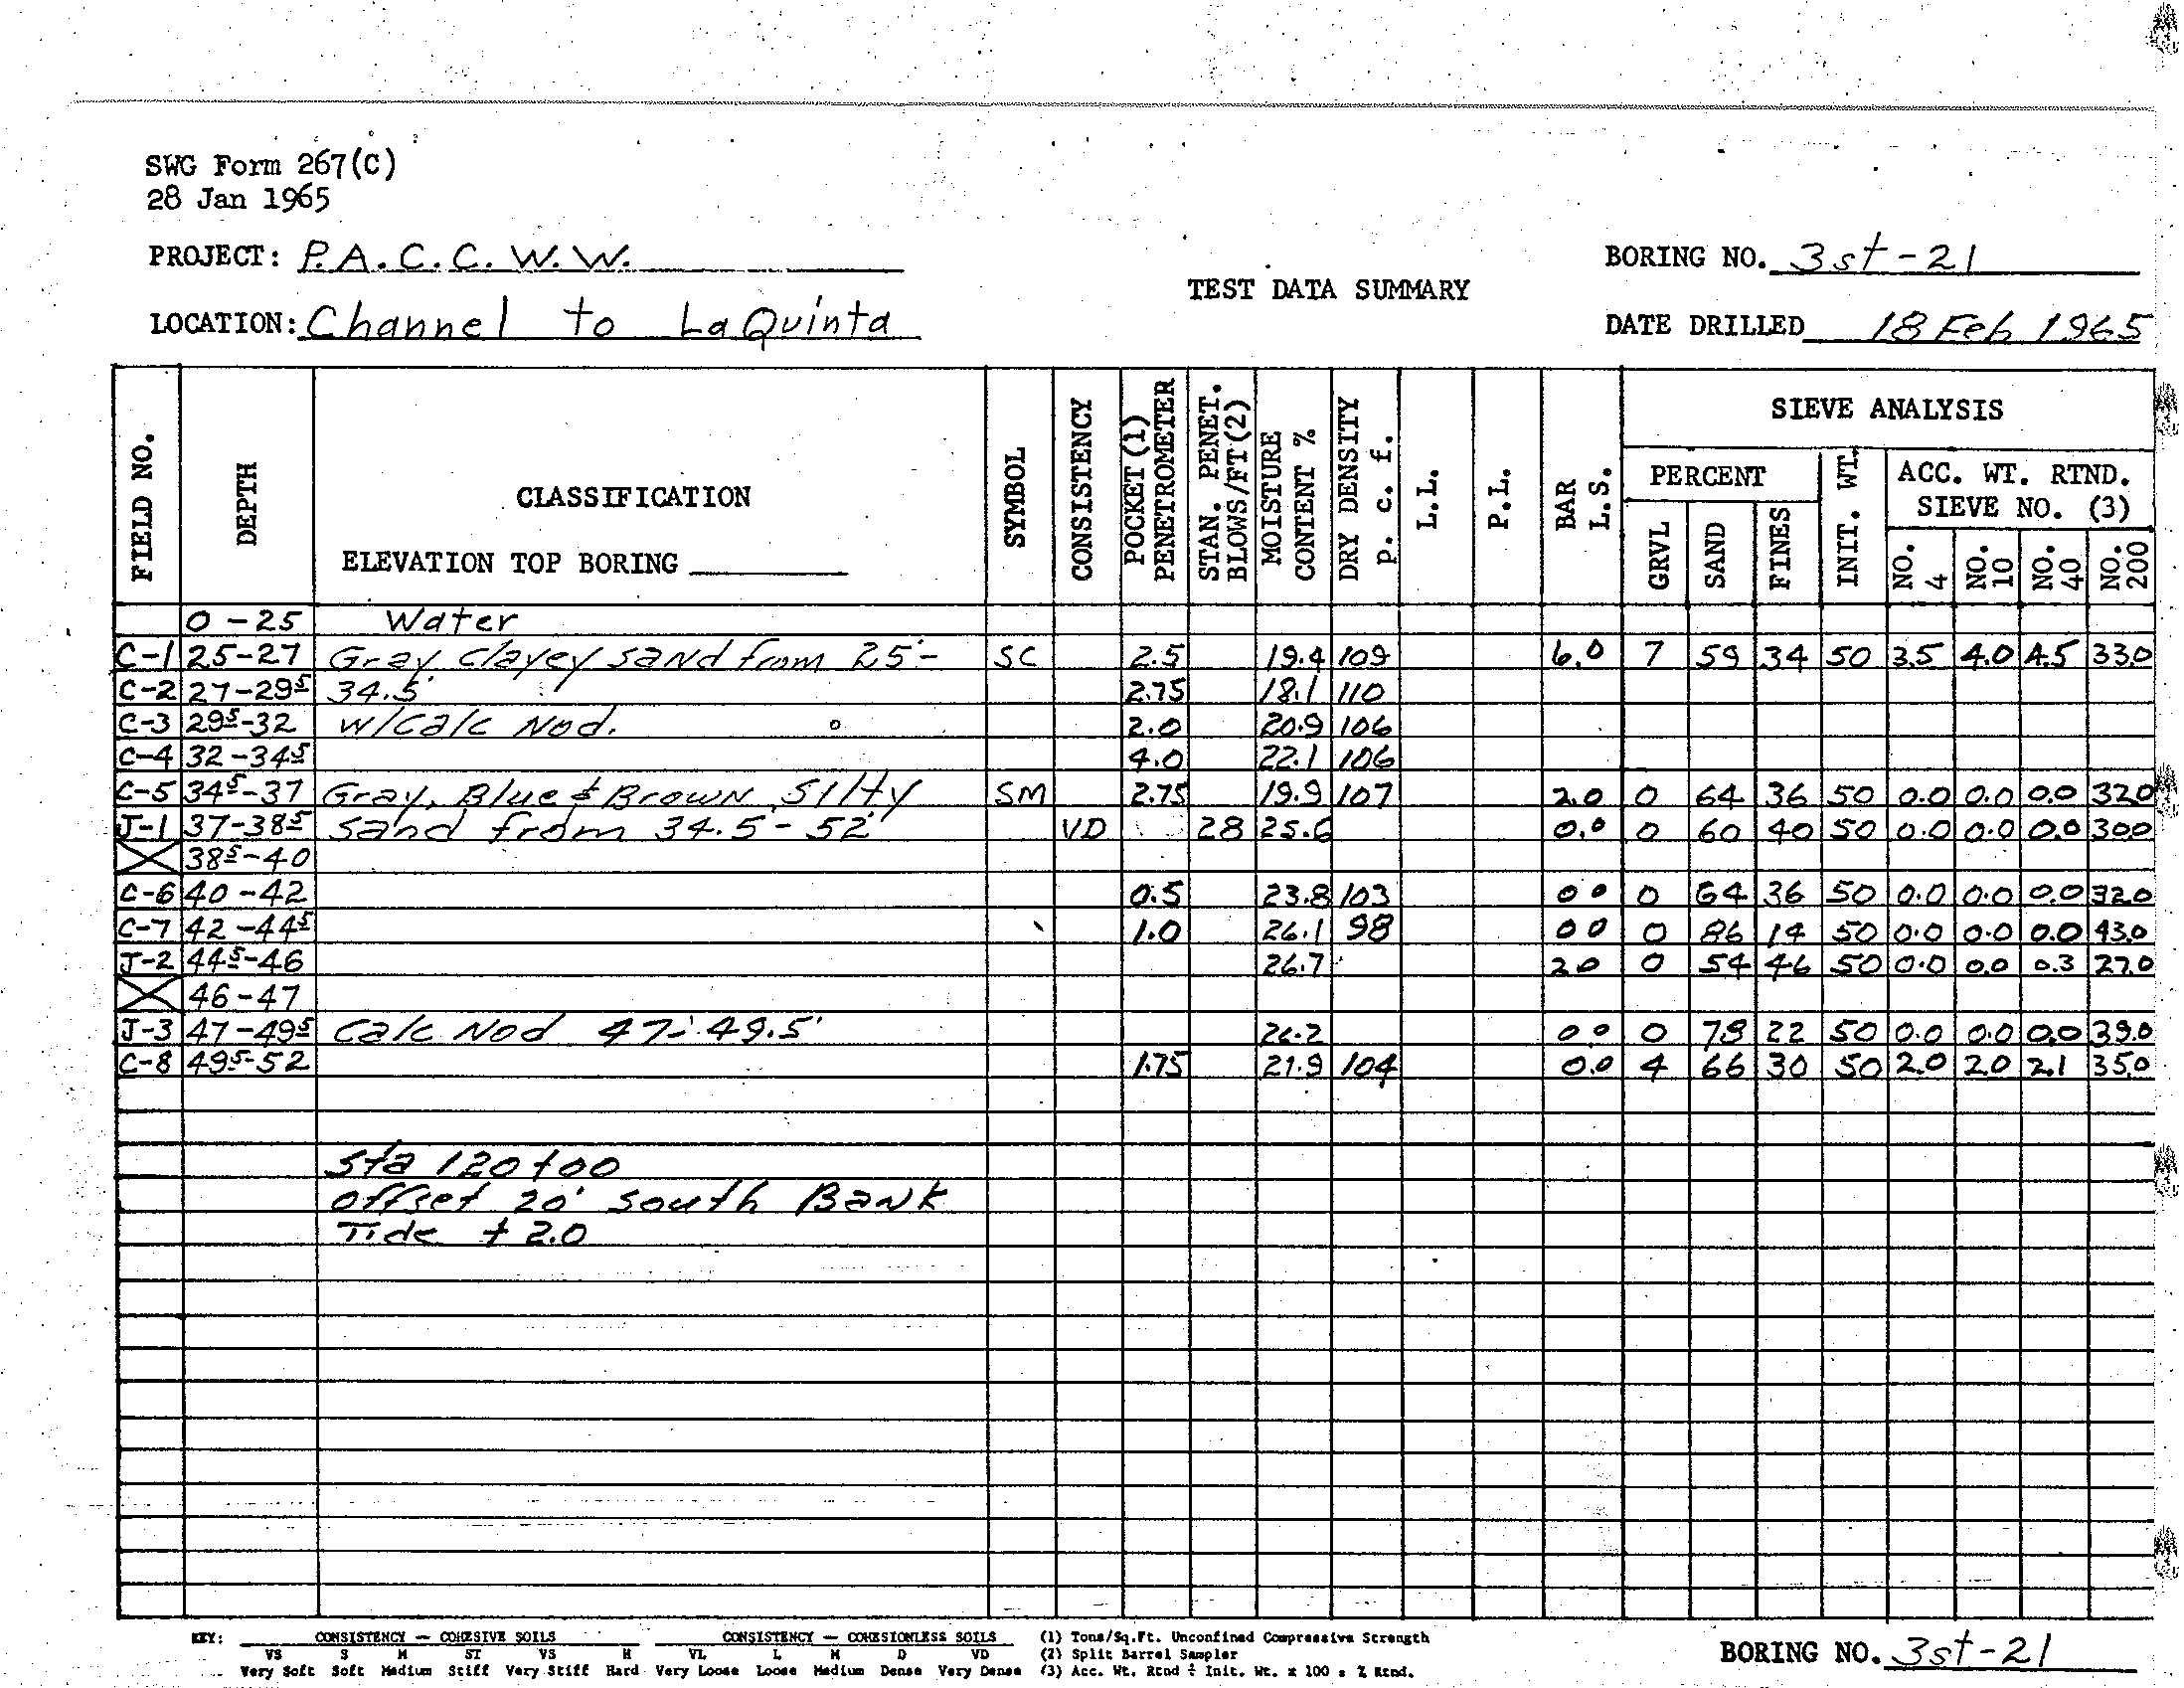 SWG Form 267(C)
28 Jan 1965
PROJECT: P.A.C.C.W.W.
BORING NO. 3st-21
TEST DATA SUMMARY
LOCATION: Channel to La Quinta
DATE DRILLED 18 Feb 1965
FIELD NO. DEPTH CLASSIFICATION SYMBOL CONSISTENCY POCKET (1) PENETROMETER STAN. PENET. BLOWS/FT(2) MOISTURE CONTENT % DRY DENSITY p. c. f. L.L. P.L. BAR L.S. SIEVE ANALYSIS
PERCENT INIT. WT. ACC. WT. RTND. SIEVE NO. (3)
GRVL SAND FINES NO. 4 NO. 10 NO. 40 NO. 200
ELEVATION TOP BORING
0-25 Water
C-1 25-27 Gray clayey sand from 25'- SC 2.5 19.4 109 6.0 7 59 34 50 3.5 4.0 4.5 33.0
C-2 27-29⁵ 34.5' 2.75 18.1 110
C-3 29⁵-32 w/Calc Nod. 2.0 20.9 106
C-4 32-34⁵ 4.0 22.1 106
C-5 34⁵-37 Gray, Blue & Brown Silty SM 2.75 19.9 107 2.0 0 64 36 50 0.0 0.0 0.0 32.0
J-1 37-38⁵ sand from 34.5'-52' VD 28 25.6 0.0 0 60 40 50 0.0 0.0 0.0 30.0
38⁵-40
C-6 40-42 0.5 23.8 103 0.0 0 64 36 50 0.0 0.0 0.0 32.0
C-7 42-44⁵ 1.0 26.1 98 0.0 0 86 14 50 0.0 0.0 0.0 43.0
J-2 44⁵-46 26.7 2.0 0 54 46 50 0.0 0.0 0.3 27.0
46-47
J-3 47-49⁵ Calc Nod 47-49.5' 26.2 0.0 0 78 22 50 0.0 0.0 0.0 39.0
C-8 49⁵-52 1.75 21.9 104 0.0 4 66 30 50 2.0 2.0 2.1 35.0
Sta 120+00
offset 20' south Bank
Tide + 2.0
KEY: CONSISTENCY — COHESIVE SOILS CONSISTENCY — COHESIONLESS SOILS (1) Tons/Sq.Ft. Unconfined Compressive Strength
VS S M ST VS H VL L M D VD (2) Split Barrel Sampler
Very Soft Soft Medium Stiff Very Stiff Hard Very Loose Loose Medium Dense Very Dense (3) Acc. Wt. Rtnd ÷ Init. Wt. x 100 = % Rtnd.
BORING NO. 3st-21